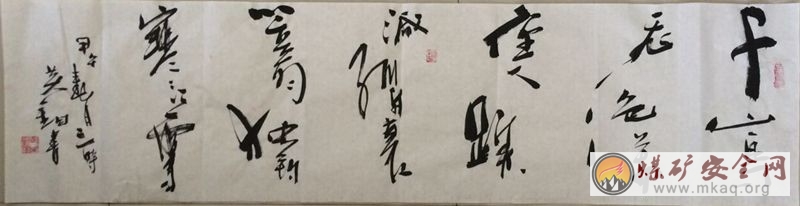 千山
鸟飞绝万
径人蹤
滅孤舟蓑
笠翁独钓
寒江雪
甲午
月
书
煤矿安全网
www.mkaq.org